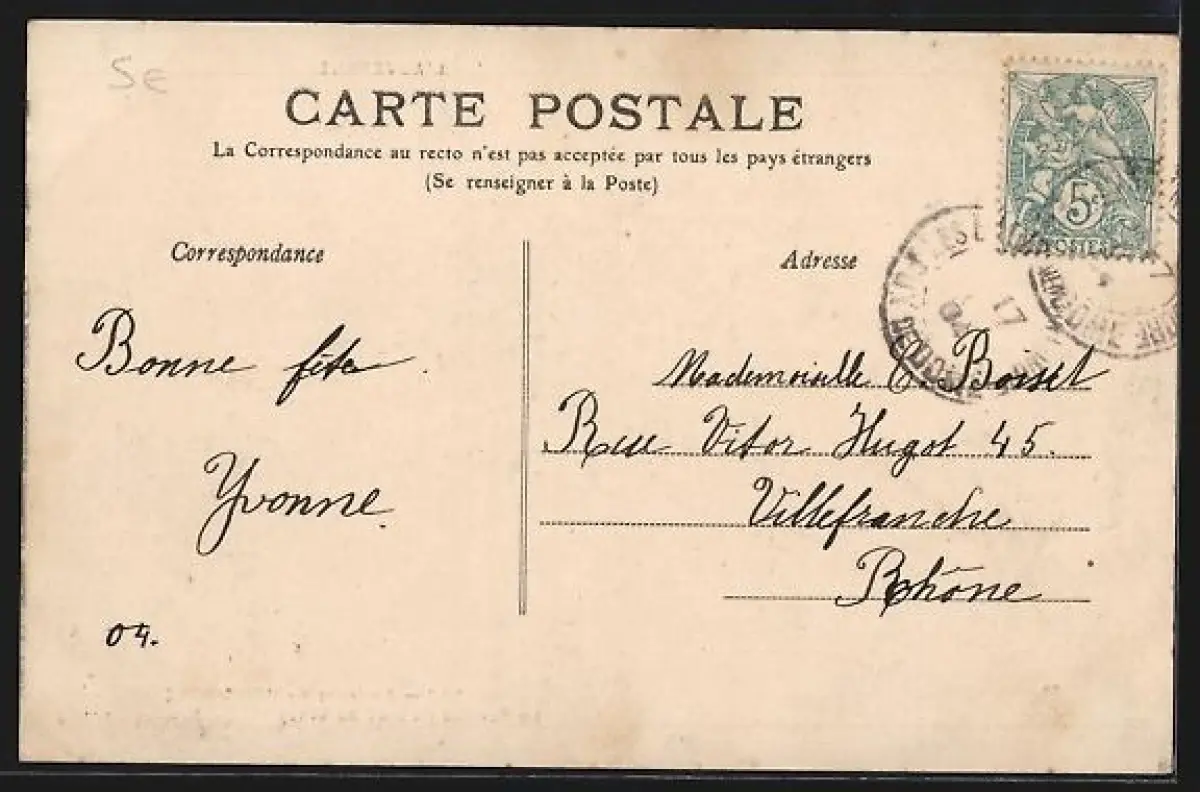 5€
CARTE POSTALE
La Correspondance au recto n'est pas acceptée par tous les pays étrangers
(Se renseigner à la Poste)
5c
POSTES
Correspondance
Adresse
17
04
Bonne fête.
Yvonne
04.
Mademoiselle C. Bosset
Rue Vitor Hugot 45.
Villefranche
Rhône